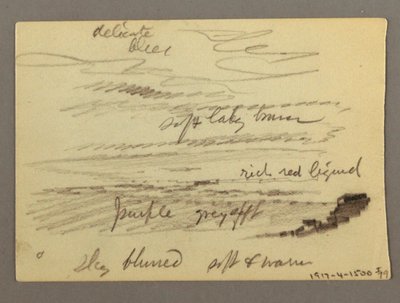 delicate
blue
soft lakey brown
rich red liquid
purple grey
sky blurred soft & warm
1917-4-1500